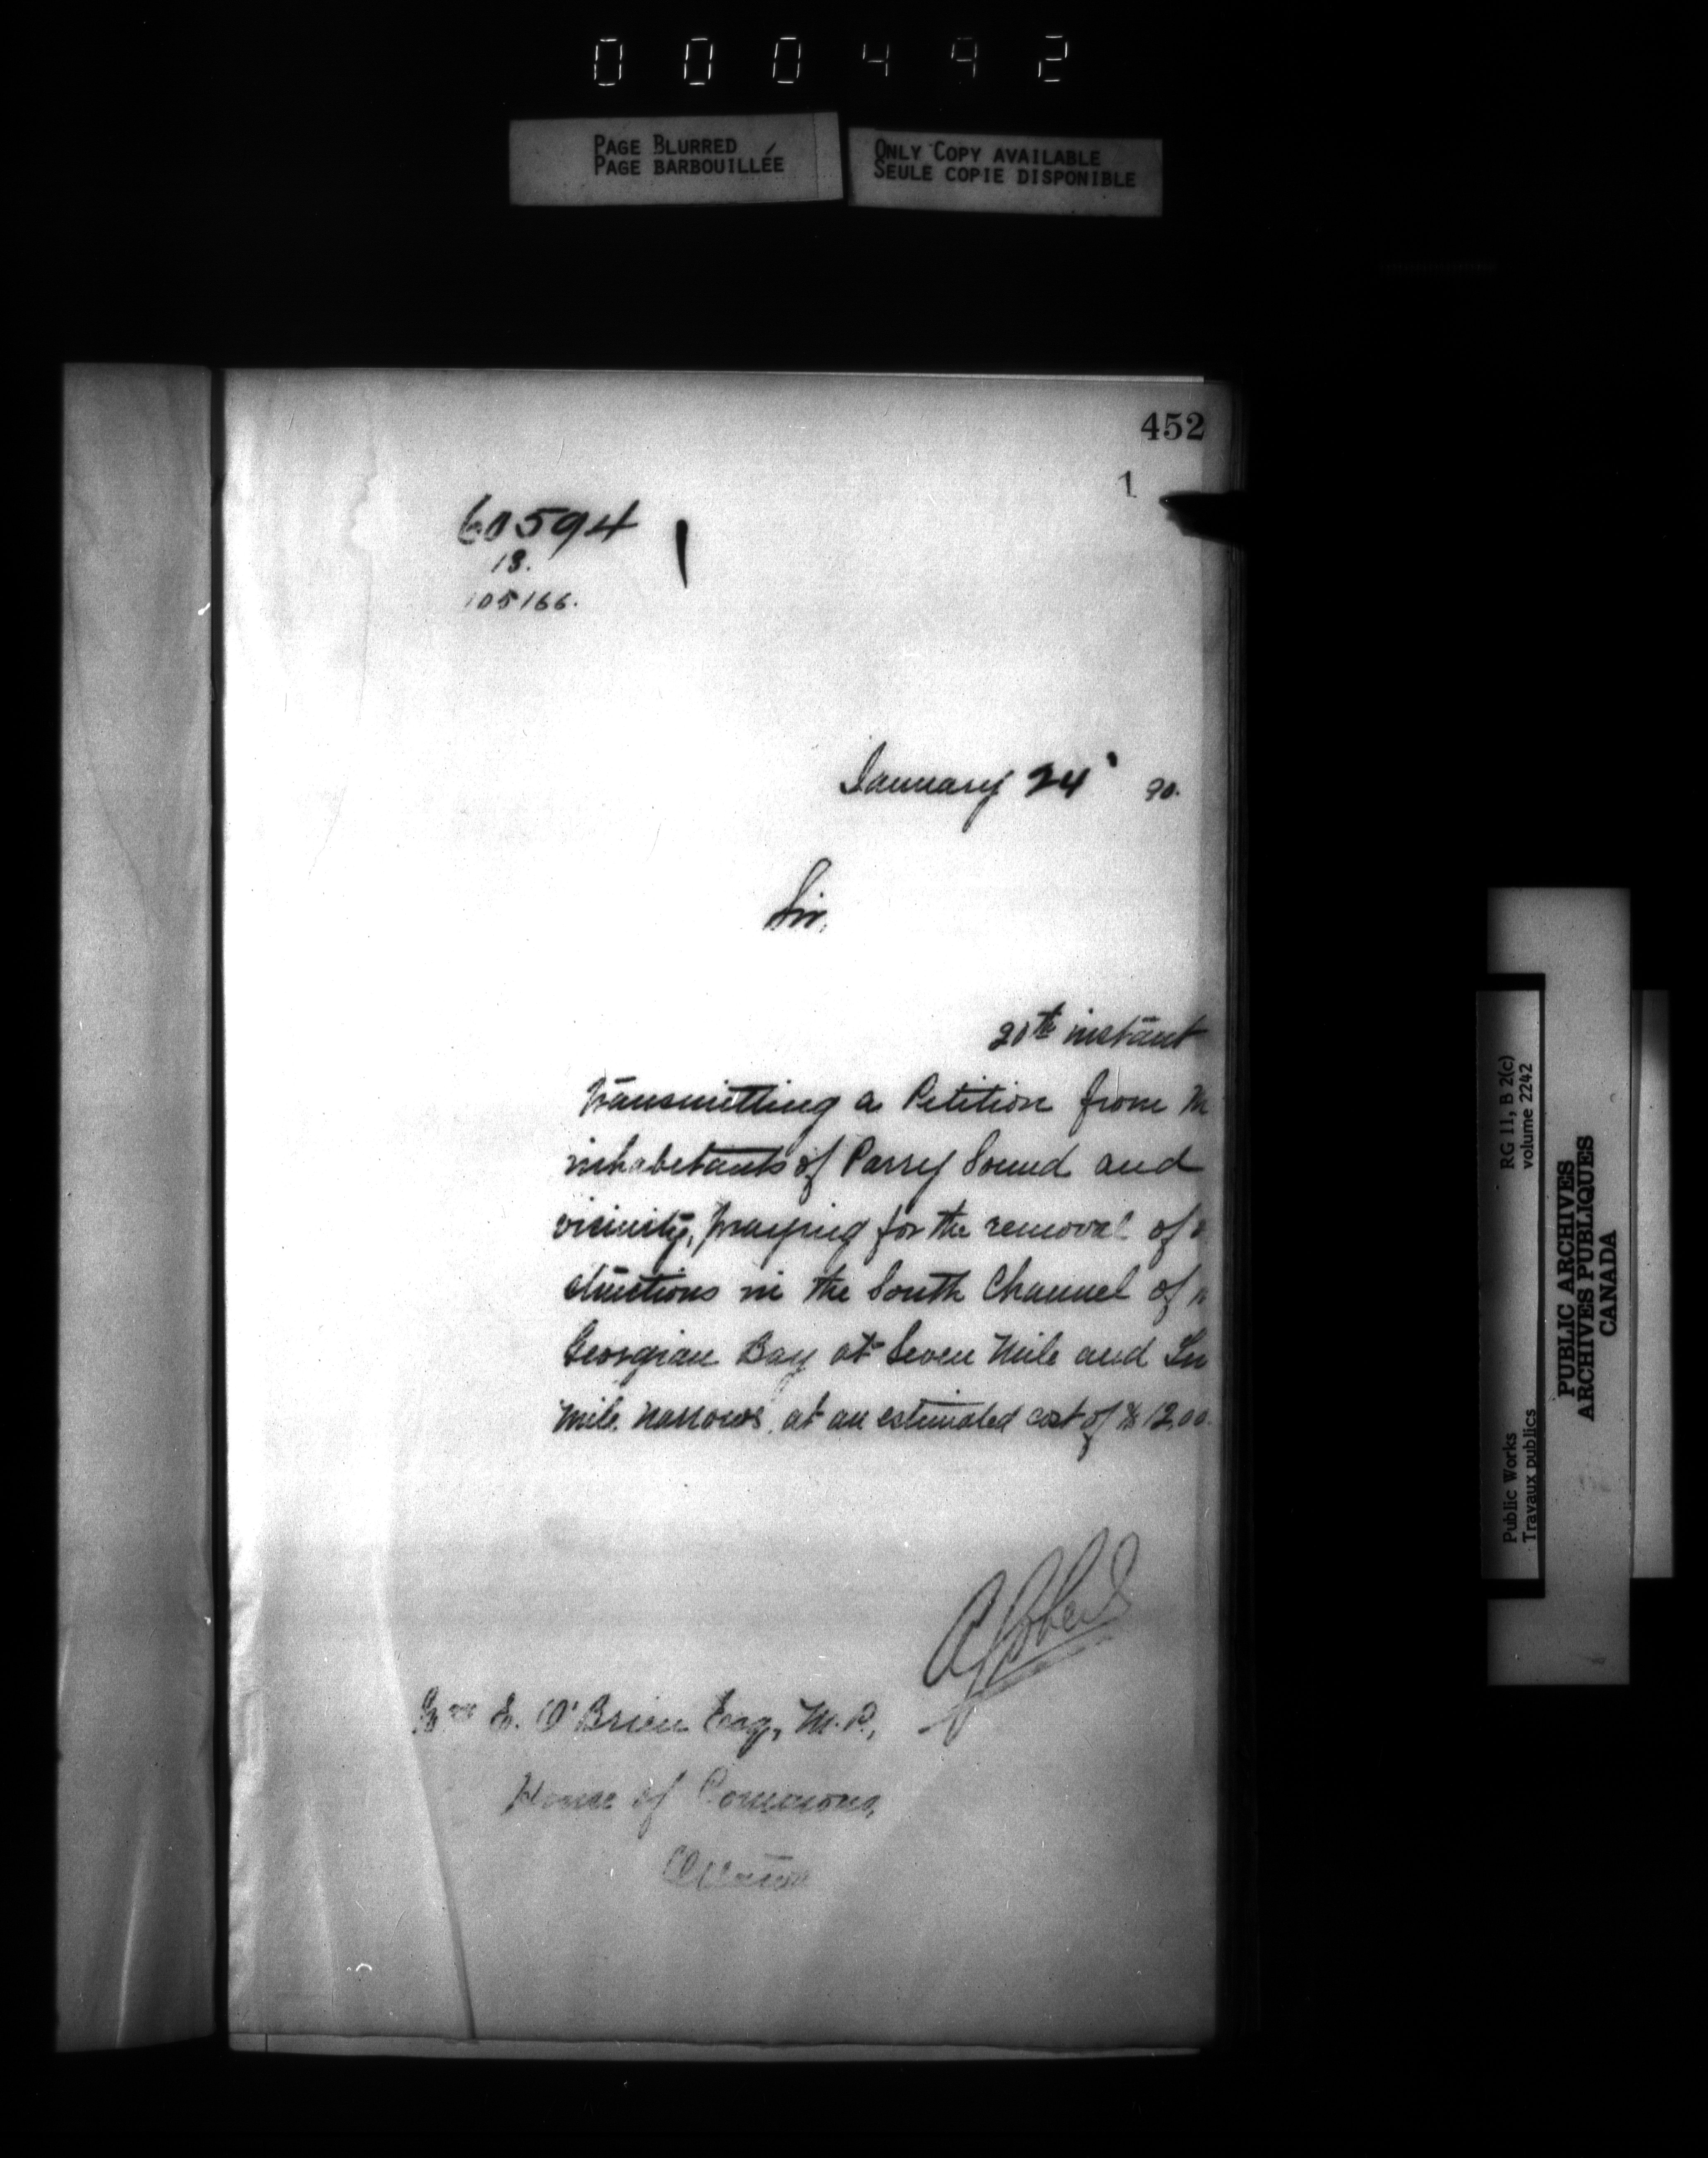 000492
PAGE BLURRED
PAGE BARBOUILLÉE
ONLY COPY AVAILABLE
SEULE COPIE DISPONIBLE
452
1
60594
13.
105166.
January 24' 90.
Sir,
20th instant
transmitting a Petition from
inhabitants of Parry Sound and
vicinity, praying for the removal of
structions in the South Channel of
Georgian Bay at Seven Mile and
mile narrows, at an estimated cost of $ 1200
E. O'Brien Esq, M.P.,
House of Commons,
Ottawa
RG 11, B 2(c)
volume 2242
Public Works
Travaux publics
PUBLIC ARCHIVES
ARCHIVES PUBLIQUES
CANADA